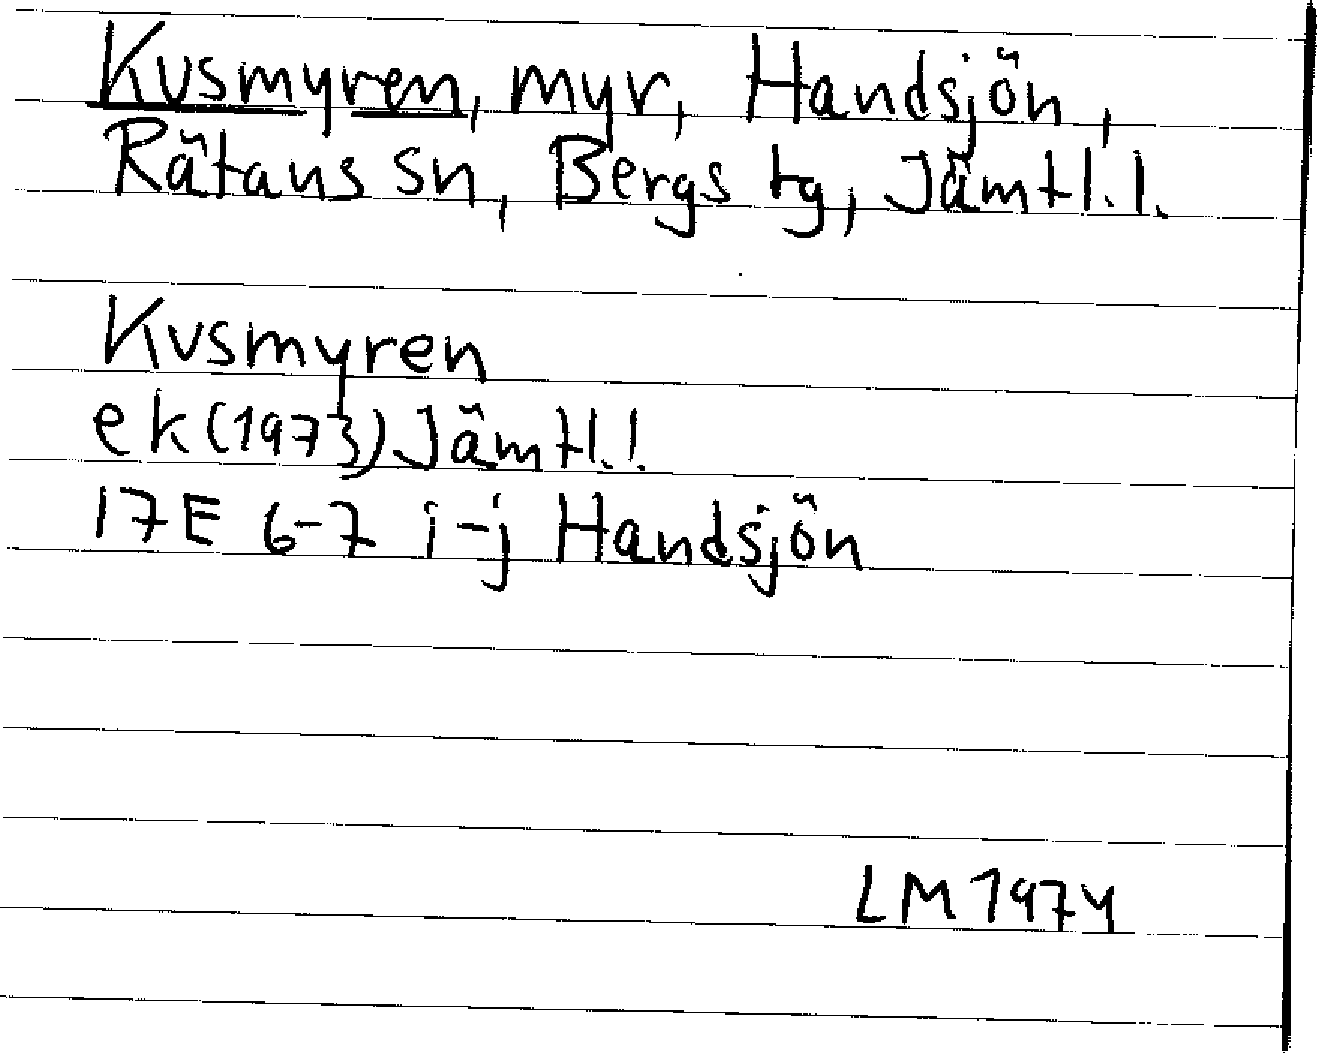 Kusmyren, myr, Handsjön,
Rätans sn, Bergs tg, Jämtl.l.
Kusmyren
ek (1973) Jämtl.l.
17E 6-7 i-j Handsjön
LM 1974